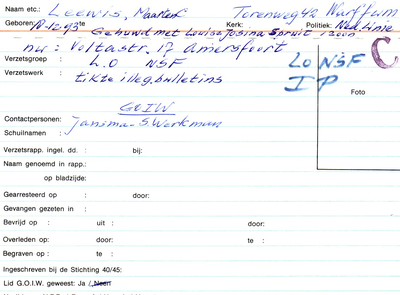 Naam etc.: Leewis, Maarten Torenweg 42 Warffum
Geboren: 10-12-93 te Kerk: Politiek: Neutraal
Gehuwd met Louisa Josina Spruit 1 zoon
nu: Voltastr. 17 Amersfoort
Verzetsgroep : L.O NSF
LO NSF
IP
C
Verzetswerk : tikte illeg. bulletins
GOIW
Contactpersonen: Jansma - S. Werkman
Schuilnamen :
Foto
Verzetsrapp. ingel. dd. : bij:
Naam genoemd in rapp.:
op bladzijde:
Gearresteerd op : door:
Gevangen gezeten in :
Bevrijd op : uit : door:
Overleden op: door: te :
Begraven op : te :
Ingeschreven bij de Stichting 40/45:
Lid G.O.I.W. geweest: Ja / Neen